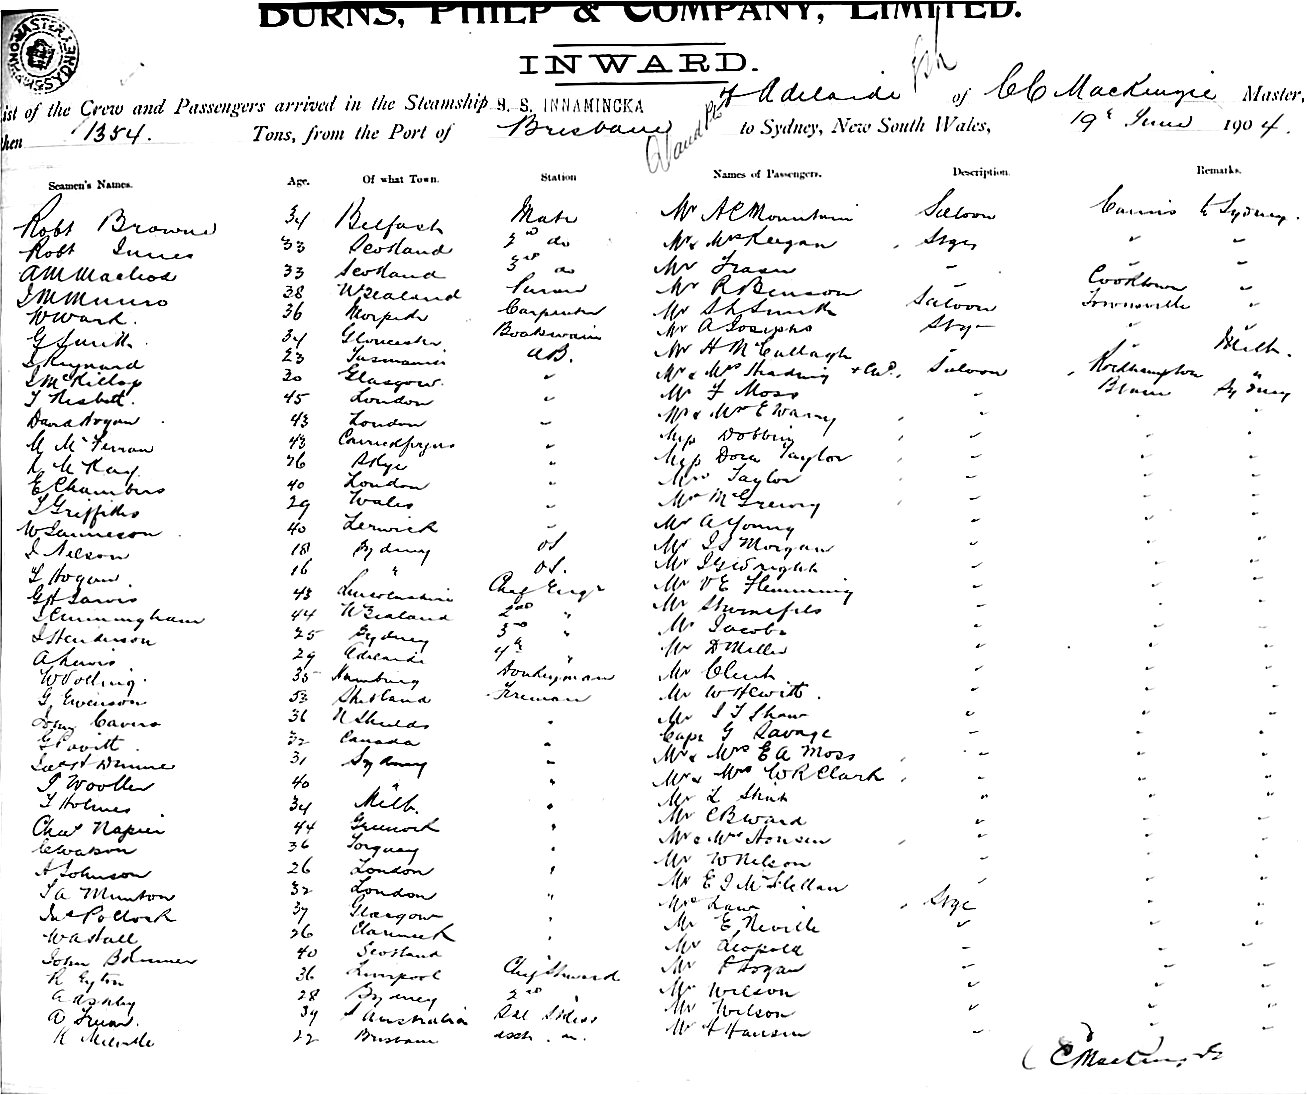 BURNS, PHILP & COMPANY, LIMITED.
INWARD.
ist of the Crew and Passengers arrived in the Steamship S. S. INNAMINCKA of Adelaide of CC MacKenzie Master,
then 1354. Tons, from the Port of Brisbane to Sydney, New South Wales, 19th June 1904.
Seamen's Names. Age. Of what Town. Station Names of Passengers. Description. Remarks.
Robt Browne 34 Belfast Mate Mr A C Mountain Saloon Cairns to Sydney.
Robt Innes 33 Scotland 2nd do Mr & Mrs Keegan Stge " "
A M Macleod 33 Scotland 3rd do Mr Fraser " " "
J M Munro 38 N Zealand Purser Mr R Benson " Cooktown "
W Wark. 36 Morpeth Carpenter Mr S L Smith Saloon Townsville "
G Smith. 34 Gloucester Boatswain Mr A Josephs Stge " "
J Keynard 23 Tasmania AB. Mr H McCullagh " " Melb.
J McKillop 30 Glasgow. " Mr & Mrs Shading + Chd. Saloon Rockhampton "
T Nisbet. 45 London " Mr F Moss " Brisne Sydney
David Hogan 43 London " Mr & Mrs E Warry " " "
M McFerran 43 Carrickfergus " Miss Dobbin " " "
R McKay. 26 Skye " Miss Dora Taylor " " "
E Chambers 40 London " Mrs Taylor " " "
T Griffiths 29 Wales " Mr McGreevy " " "
W Jamieson 40 Lerwick " Mr A Young " " "
J Nelson 18 Sydney OS Mr J S Morgan " " "
T Hogan. 16 " OS. Mr J G Wright " " "
G H Jarvis 43 Lincolnshire Chef Engr Mr V E Flemming " " "
J Cunningham 44 N Zealand 2nd " Mr " " "
J Henderson 25 Sydney 3rd " Mr Jacobs " " "
A Lewis. 29 Adelaide 4th " Mr D Miller " " "
W 35 Hamburg Donkeyman Mr Clark " " "
G. Evenson 53 Shetland Fireman Mr W Hewitt. " " "
John Cavers 36 N Shields " Mr J T Shaw " " "
G Povitt. 32 Canada " Capt G Savage " " "
Dunne 31 Sydney " Mr & Mrs E A Moss " " "
J Woolley 40 " " Mr & Mrs W R Clark " " "
T Holmes 34 Melb. " Mr L " " "
Chas Napier 44 Greenock " Mr C B Ward " " "
C Watson 36 Torquay " Mr & Mrs Hansen " " "
A Johnson 26 London " Mr W Nelson " " "
J A Munton 32 London " Mr E J McLellan " " "
Jas Pollock 37 Glasgow " Mrs Law Stge " "
W A Hall 26 " Mr E. Neville " " "
John 40 Scotland " Mr Leopold " " "
R Eyton 36 Liverpool Chef Steward Mr P Logan " " "
A Ashby 28 Sydney 2nd " Mr Wilson " " "
A 34 S Australia Mr Wilson " " "
R Melville 22 Brisbane Mr H Hansen " " "
C C MacKenzie